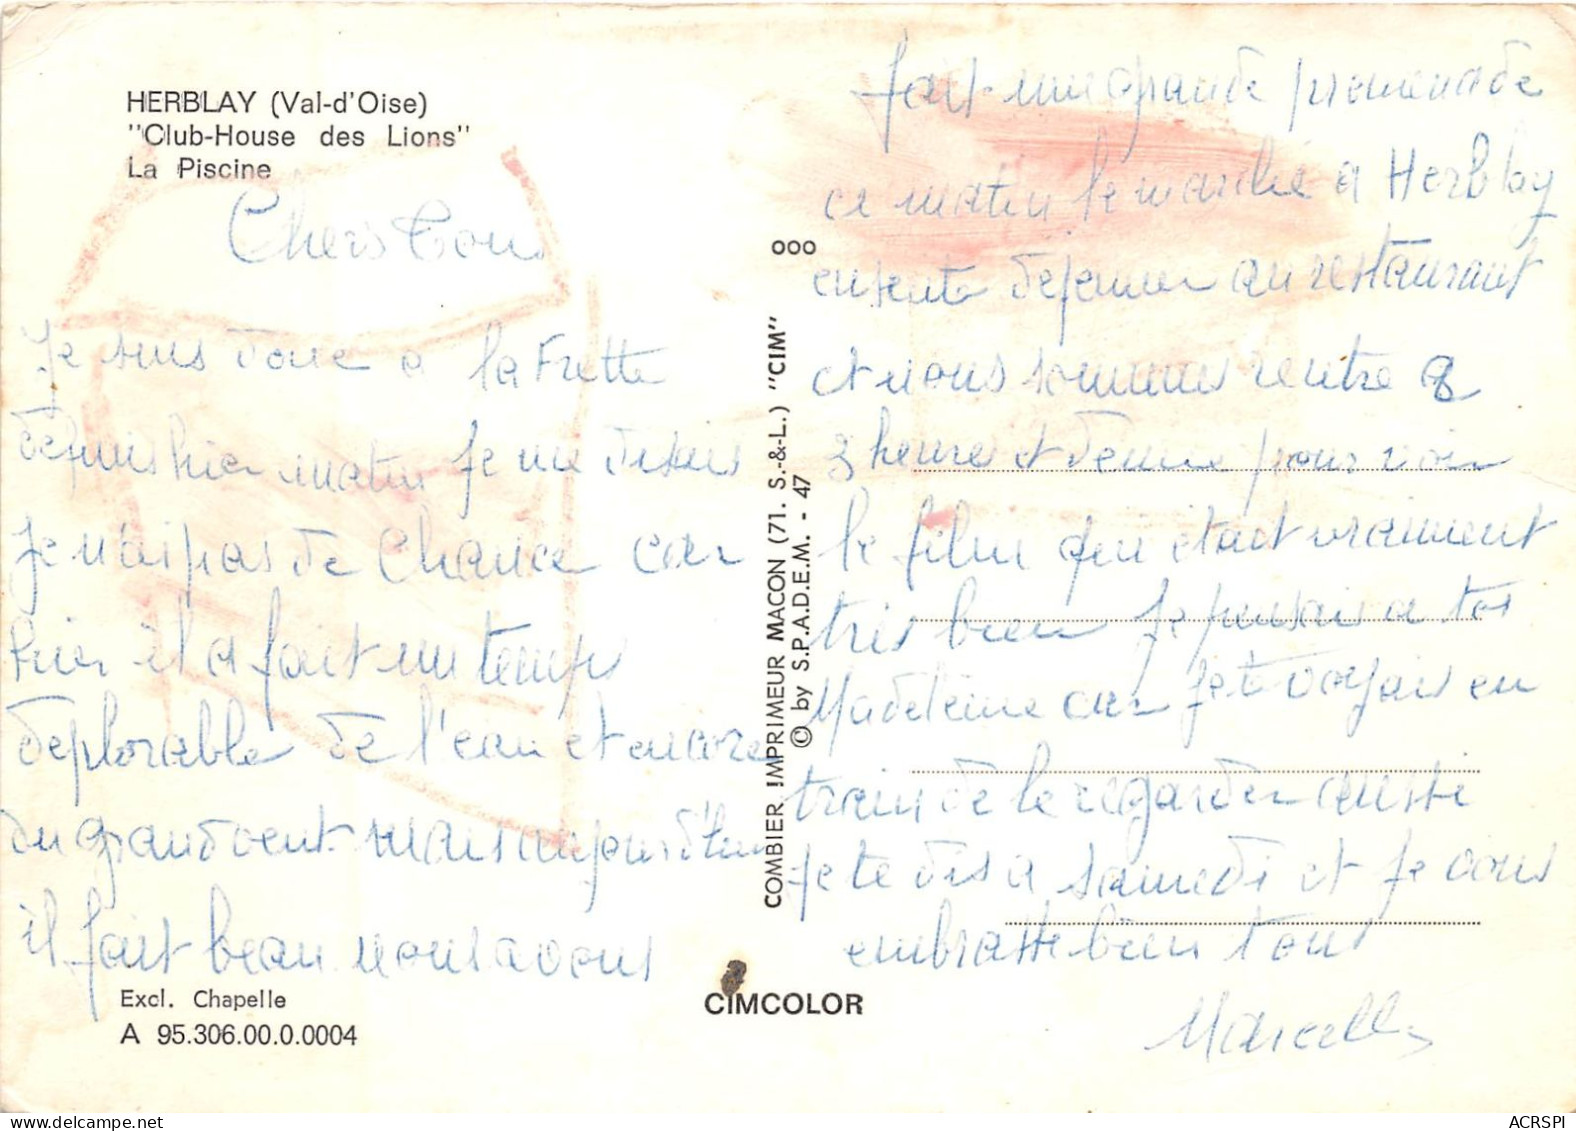 HERBLAY (Val-d'Oise)
"Club-House des Lions"
La Piscine
Chers tous
Je suis donc a la Frette
depuis hier matin Je me disais
Je n'ai pas de chance car
hier il a fait un temps
deplorable de l'eau et encore
du grand vent mais aujourd'hui
il fait beau nous avons
Excl. Chapelle
A 95.306.00.0.0004
ooo
COMBIER IMPRIMEUR MACON (71. S.-&-L.) "CIM"
© by S.P.A.D.E.M. - 47
CIMCOLOR
fait une grande promenade
ce matin le marché a Herblay
ensuite dejeuner au restaurant
et nous sommes rentre a
3 heure et demie pour voir
le film qui etait vraiment
très bien Je pensais a toi
Madeleine car Je te voyais en
train de le regarder aussi
Je te dis a samedi et Je vous
embrasse bien tous
Marcelle
ACRSPI